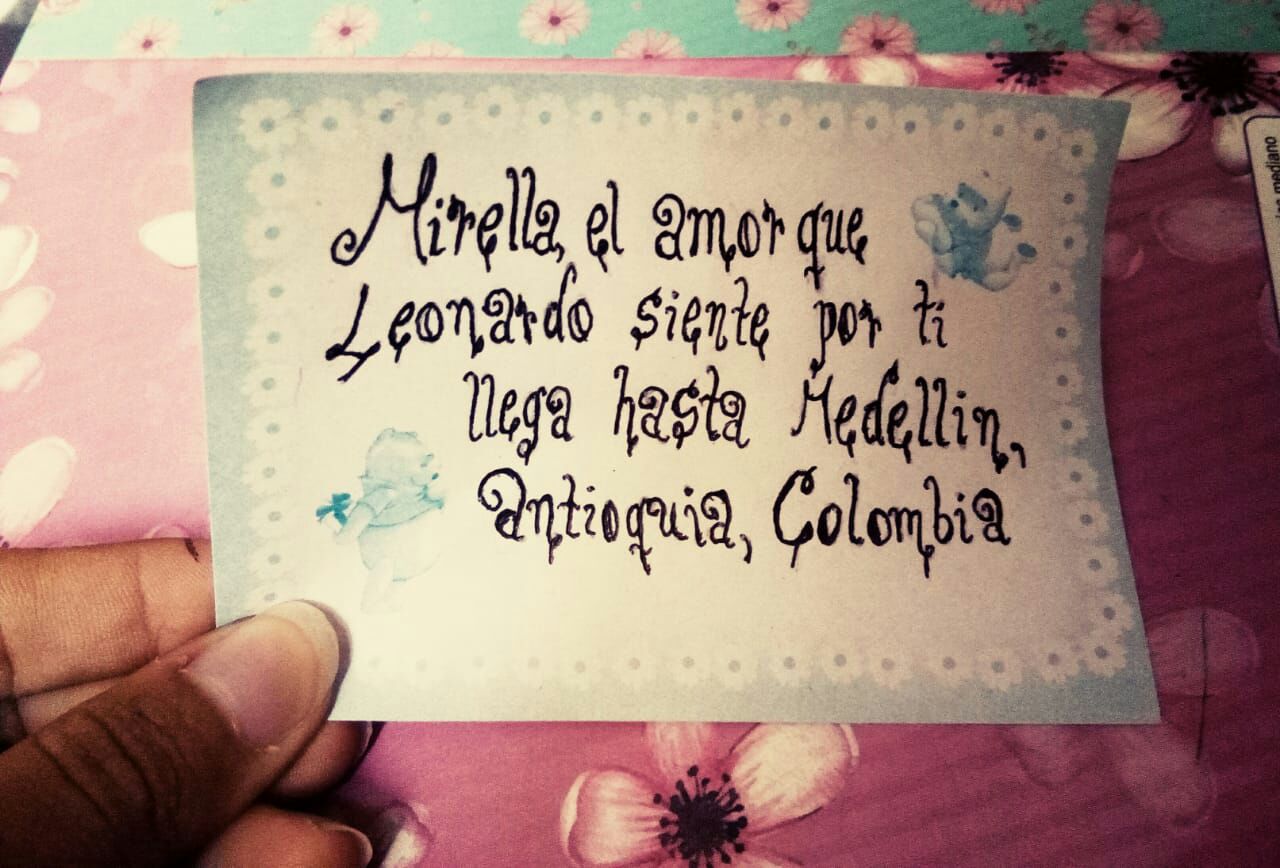 Mirella, el amor que
Leonardo siente por ti
llega hasta Medellin,
Antioquia, Colombia
mediano